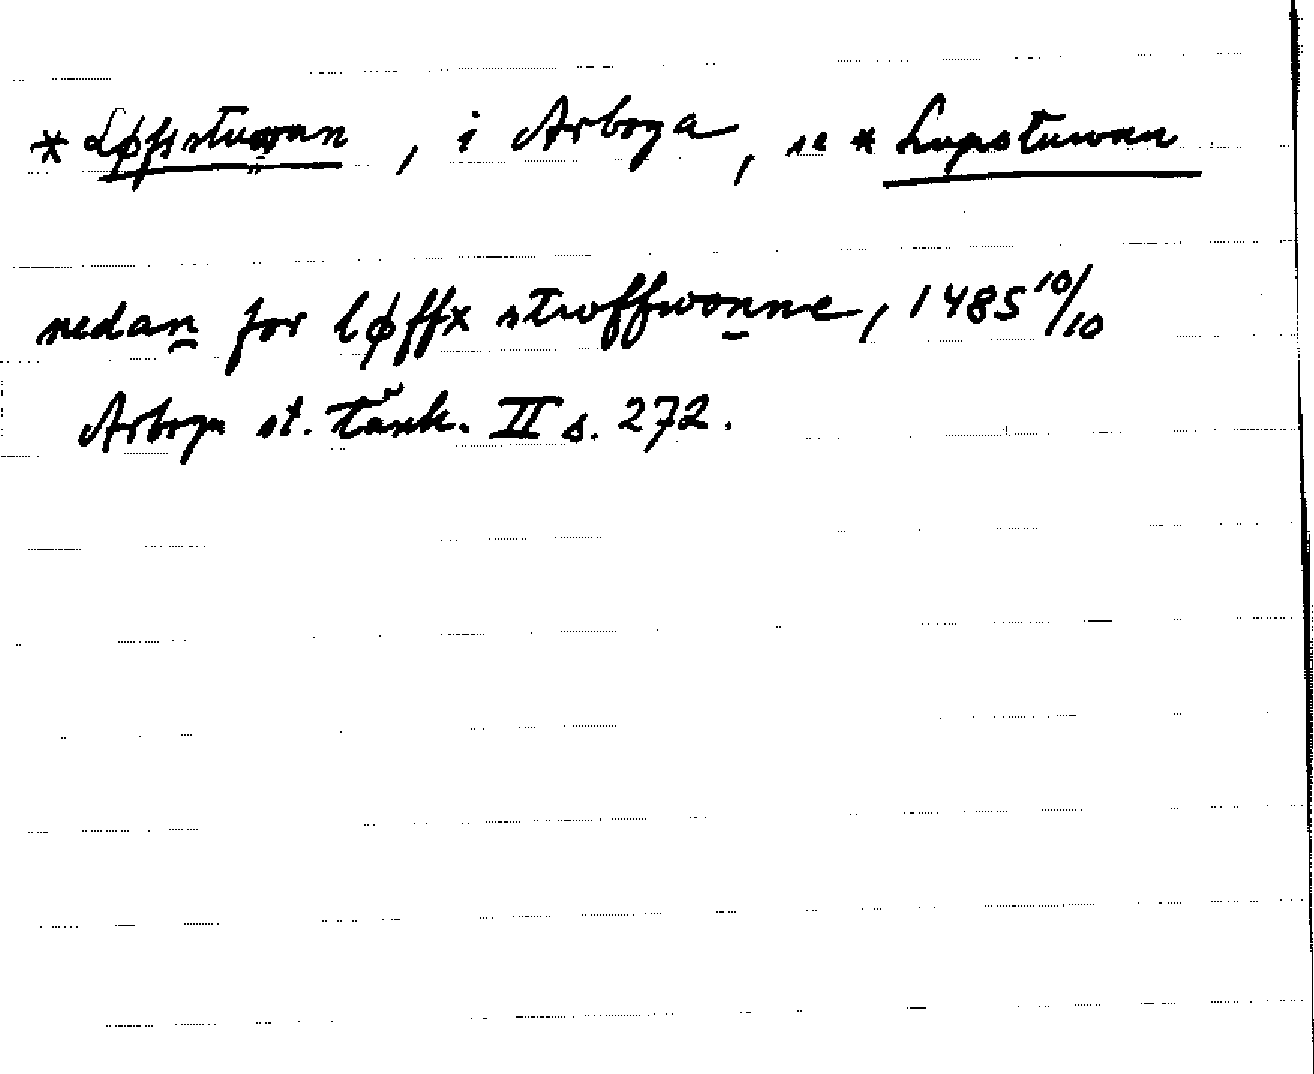 * Løffstuwan, i Arboga, se * Lupstuwan.
nedan for løffx stwffwonne, 1485 10/10
Arboga st. tänk. II s. 272.